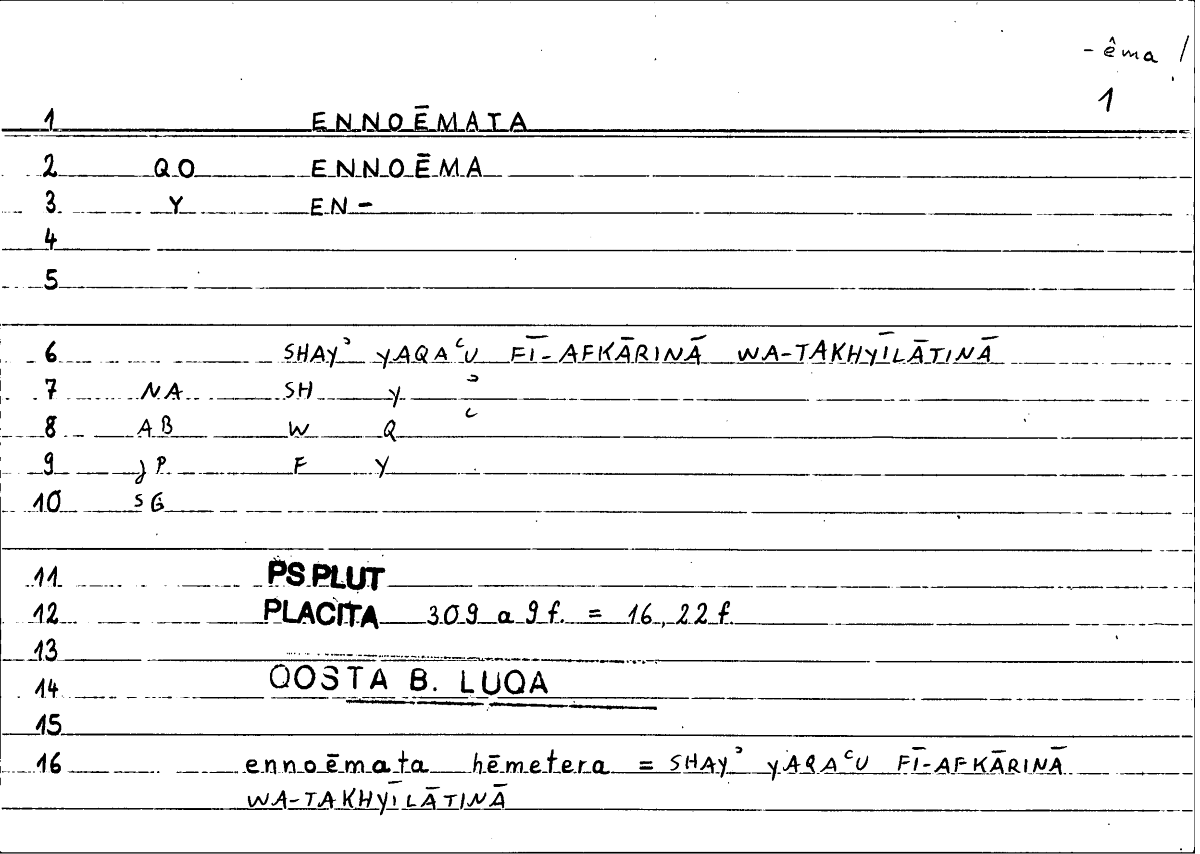 - êma /
1
1 ENNOĒMATA
2 QO ENNOĒMA
3 Y EN-
4
5
6 SHAYʾ YAQAʿU FĪ-AFKĀRINĀ WA-TAKHYĪLĀTINĀ
7 NA SH Y ʾ
8 AB W Q ʿ
9 JP F Y
10 SG
11 PS PLUT
12 PLACITA 309 a 9 f. = 16, 22 f.
13
14 QOSTA B. LUQA
15
16 ennoēmata hēmetera = SHAYʾ YAQAʿU FĪ-AFKĀRINĀ
WA-TAKHYĪLĀTINĀ